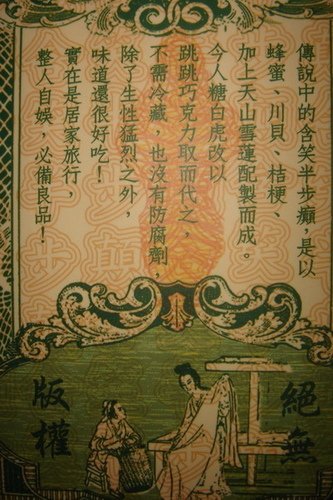 傳說中的含笑半步癲，是以
蜂蜜、川貝、桔梗、
加上天山雪蓮配製而成。
今人糖白虎改以
跳跳巧克力取而代之，
不需冷藏，也沒有防腐劑，
除了生性猛烈之外，
味道還很好吃！
實在是居家旅行，
整人自娛，必備良品！
絕無
版權